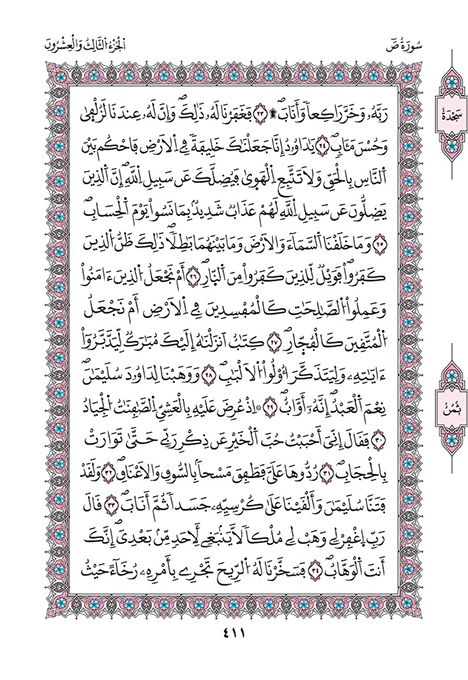 سُورَةُ صٓ
الجُزْءُ الثَّالِثُ وَالْعِشْرُونَ
رَبَّهُۥ وَخَرَّ رَاكِعاً وَأَنَابَۖ ۩ ٢٣ فَغَفَرْنَا لَهُۥ ذَٰلِكَۖ وَإِنَّ لَهُۥ عِندَنَا لَزُلْفۭيٰ
وَحُسْنَ مَـَٔابٖۖ ٢٤ يَٰدَاوُۥدُ إِنَّا جَعَلْنَٰكَ خَلِيفَةٗ فِے اِ۬لْأَرْضِ فَاحْكُم بَيْنَ
اَ۬لنَّاسِ بِالْحَقِّ وَلَا تَتَّبِعِ اِ۬لْهَوَىٰ فَيُضِلَّكَ عَن سَبِيلِ اِ۬للَّهِۖ إِنَّ اَ۬لذِينَ
يَضِلُّونَ عَن سَبِيلِ اِ۬للَّهِ لَهُمْ عَذَابٞ شَدِيدُۢ بِمَا نَسُواْ يَوْمَ اَ۬لْحِسَابِۖ
٢٥ وَمَا خَلَقْنَا اَ۬لسَّمَآءَ وَالْأَرْضَ وَمَا بَيْنَهُمَا بَٰطِلاٗۖ ذَٰلِكَ ظَنُّ اُ۬لذِينَ
كَفَرُواْۖ فَوَيْلٞ لِّلذِينَ كَفَرُواْ مِنَ اَ۬لنَّارِۖ ٢٦ أَمْ نَجْعَلُ اُ۬لذِينَ ءَامَنُواْ
وَعَمِلُواْ اُ۬لصَّٰلِحَٰتِ كَالْمُفْسِدِينَ فِے اِ۬لْأَرْضِ أَمْ نَجْعَلُ
اُ۬لْمُتَّقِينَ كَالْفُجّ۪ارِۖ ٢٧ كِتَٰبٌ اَنزَلْنَٰهُ إِلَيْكَ مُبَٰرَكٞ لِّيَدَّبَّرُوٓاْ
ءَايَٰتِهِۦ وَلِيَتَذَكَّرَ أُوْلُواْ اُ۬لْأَلْبَٰبِۖ ٢٨ وَوَهَبْنَا لِدَاوُۥدَ سُلَيْمَٰنَۖ
نِعْمَ اَ۬لْعَبْدُۖ إِنَّهُۥٓ أَوَّابٌۖ ٢٩ ۞ اِذْ عُرِضَ عَلَيْهِ بِالْعَشِيِّ اِ۬لصَّٰفِنَٰتُ اُ۬لْجِيَادُ
٣٠ فَقَالَ إِنِّيَ أَحْبَبْتُ حُبَّ اَ۬لْخَيْرِ عَن ذِكْرِ رَبِّے حَتَّىٰ تَوَارَتْ
بِالْحِجَابِۖ ٣١ رُدُّوهَا عَلَيَّ فَطَفِقَ مَسْحاَۢ بِالسُّوقِ وَالْأَعْنَاقِۖ ٣٢ وَلَقَدْ
فَتَنَّا سُلَيْمَٰنَ وَأَلْقَيْنَا عَلَىٰ كُرْسِيِّهِۦ جَسَداٗ ثُمَّ أَنَابَۖ ٣٣ قَالَ
رَبِّ اِ۪غْفِرْ لِے وَهَبْ لِے مُلْكاٗ لَّا يَنۢبَغِے لِأَحَدٖ مِّنۢ بَعْدِيَۖ إِنَّكَ
أَنتَ اَ۬لْوَهَّابُۖ ٣٤ فَسَخَّرْنَا لَهُ اُ۬لرِّيحَ تَجْرِے بِأَمْرِهِۦ رُخَآءً حَيْثُ
سَجْدَةٌ
ثُمُنٌ
٤١١